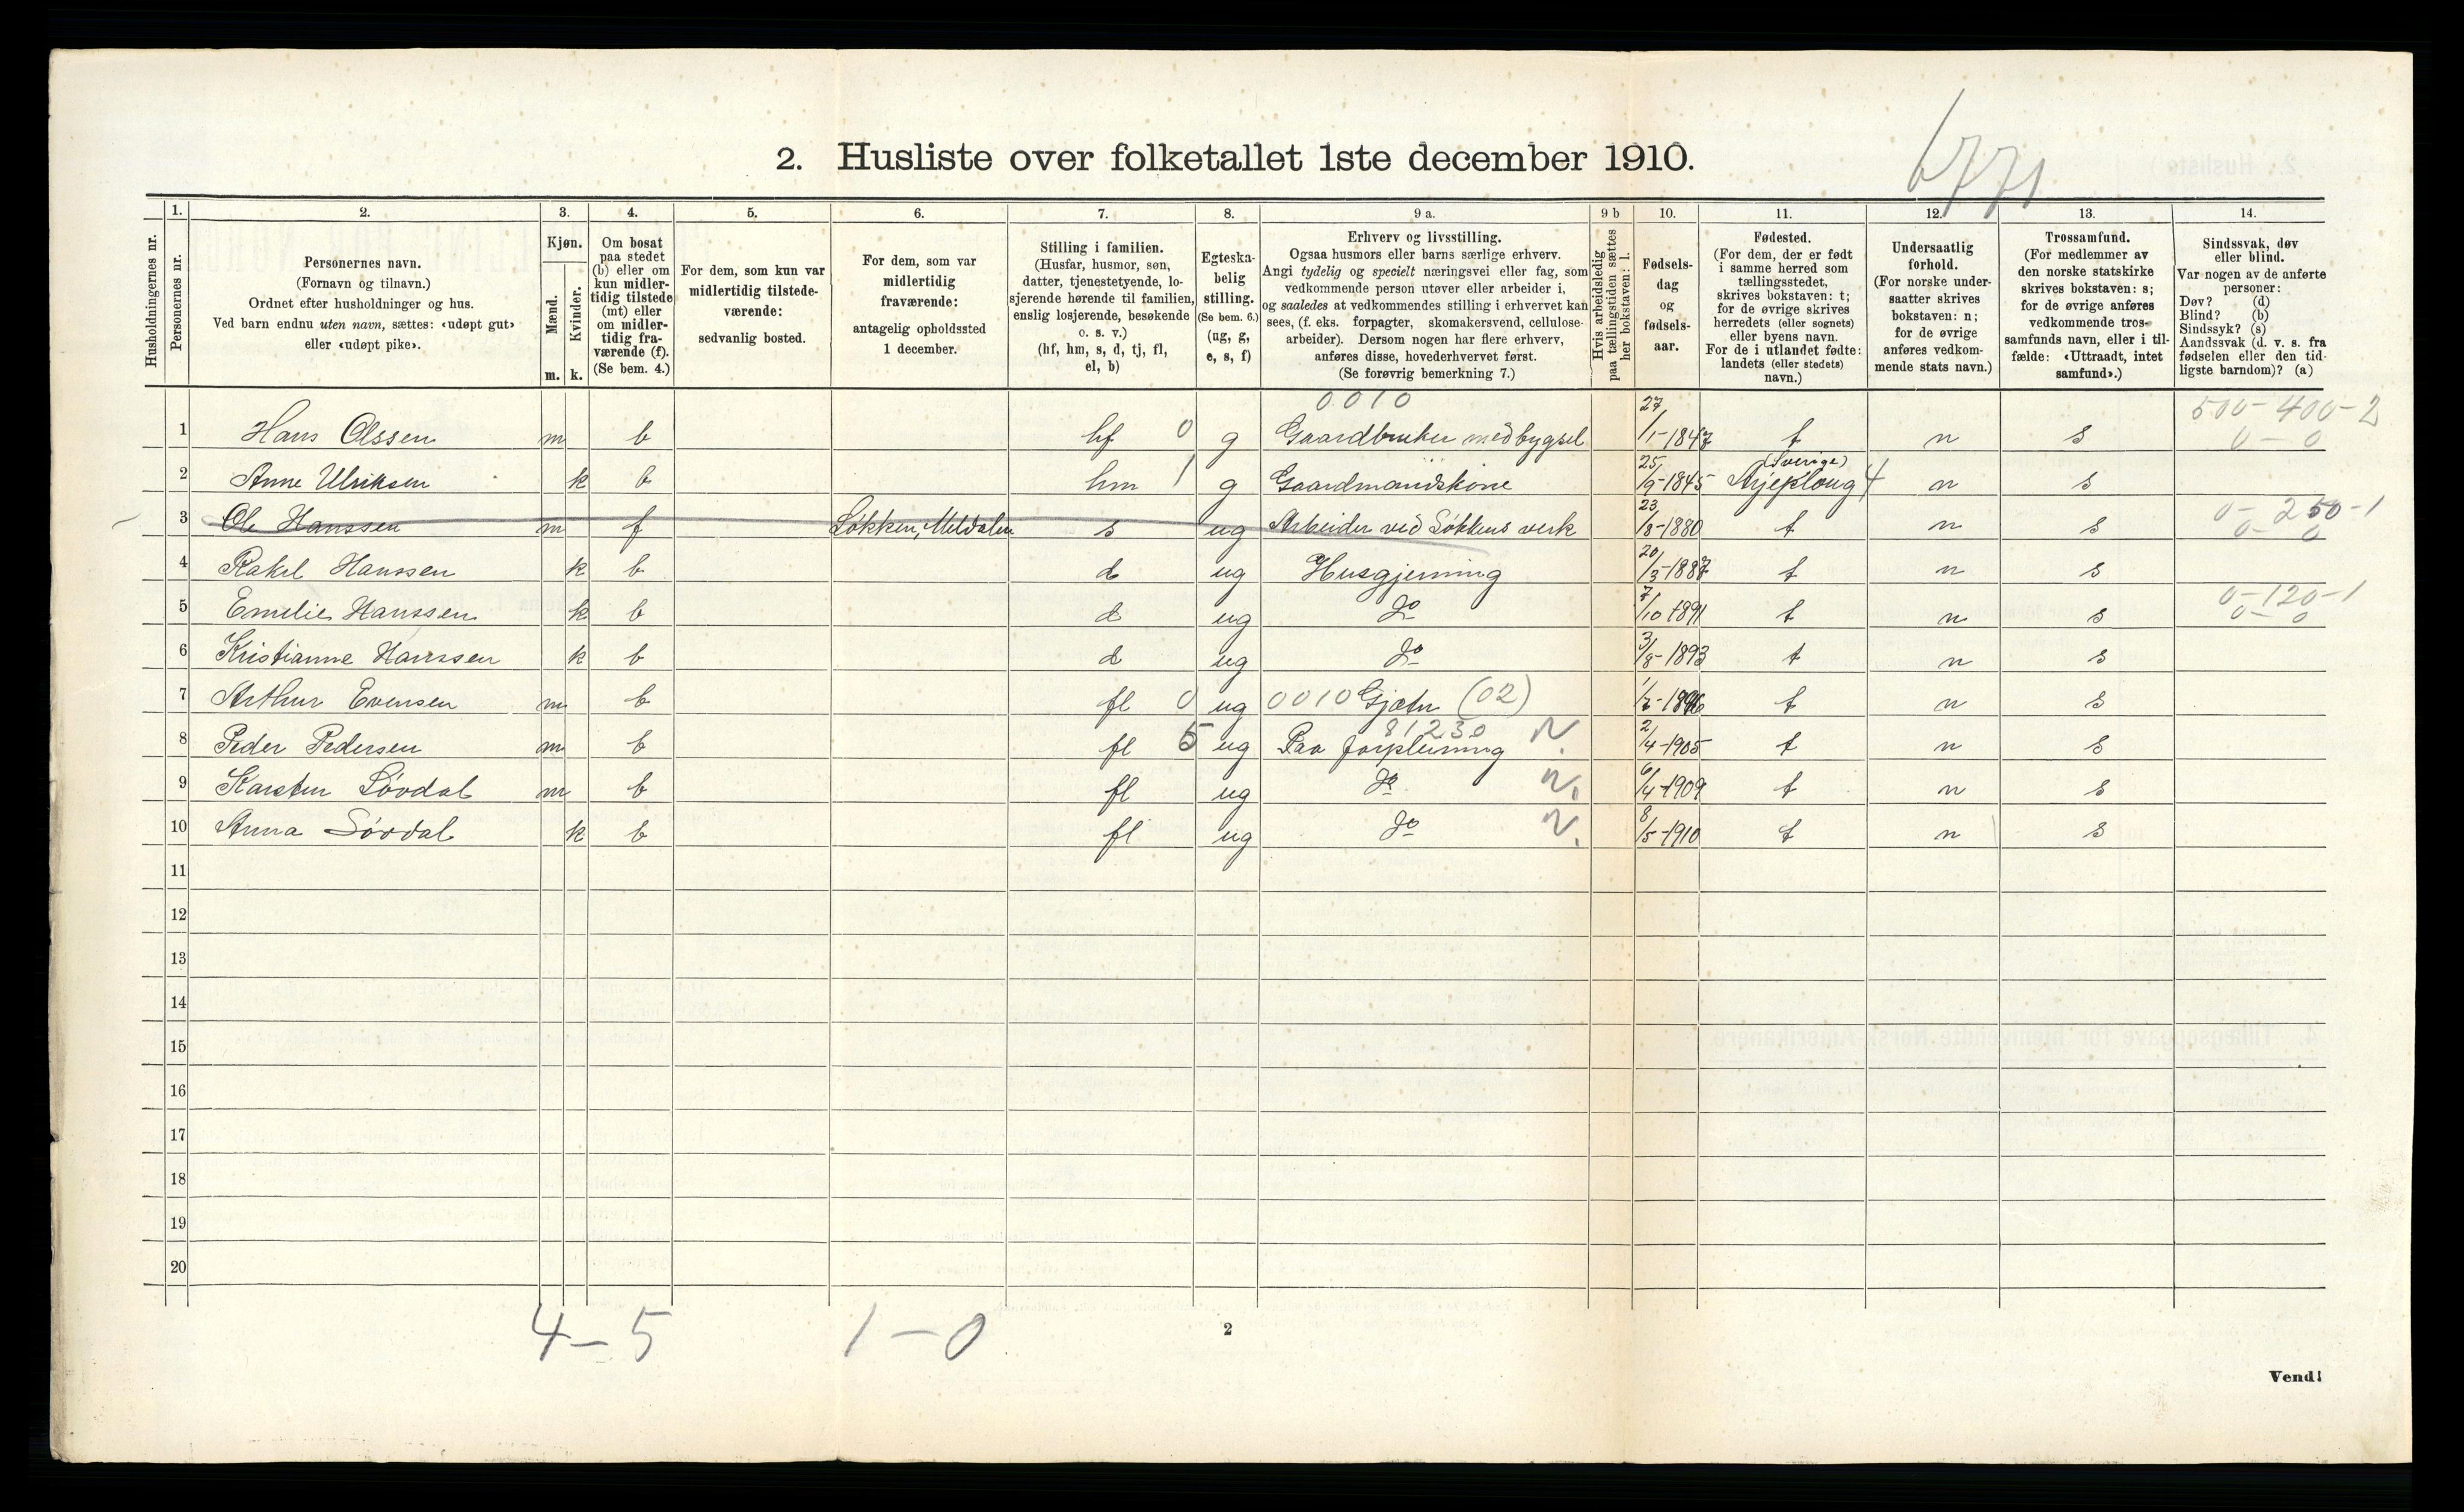 6771
2. Husliste over folketallet 1ste december 1910.
Husholdningernes nr.
1. Personernes nr.
2. Personernes navn. (Fornavn og tilnavn.) Ordnet efter husholdninger og hus. Ved barn endnu uten navn, sættes: «udøpt gut» eller «udøpt pike».
3. Kjøn. Mænd. m. Kvinder. k.
4. Om bosat paa stedet (b) eller om kun midler-tidig tilstede (mt) eller om midler-tidig fra-værende (f). (Se bem. 4.)
5. For dem, som kun var midlertidig tilstede-værende: sedvanlig bosted.
6. For dem, som var midlertidig fraværende: antagelig opholdssted 1 december.
7. Stilling i familien. (Husfar, husmor, søn, datter, tjenestetyende, lo-sjerende hørende til familien, enslig losjerende, besøkende o. s. v.) (hf, hm, s, d, tj, fl, el, b)
8. Egteska-belig stilling. (Se bem. 6.) (ug, g, e, s, f)
9 a. Erhverv og livsstilling. Ogsaa husmors eller barns særlige erhverv. Angi tydelig og specielt næringsvei eller fag, som vedkommende person utøver eller arbeider i, og saaledes at vedkommendes stilling i erhvervet kan sees, (f. eks. forpagter, skomakersvend, cellulose-arbeider). Dersom nogen har flere erhverv, anføres disse, hovederhvervet først. (Se forøvrig bemerkning 7.)
9 b Hvis arbeidsledig paa tællingstiden sættes her bokstaven: l.
10. Fødsels-dag og fødsels-aar.
11. Fødested. (For dem, der er født i samme herred som tællingsstedet, skrives bokstaven: t; for de øvrige skrives herredets (eller sognets) eller byens navn. For de i utlandet fødte: landets (eller stedets) navn.)
12. Undersaatlig forhold. (For norske under-saatter skrives bokstaven: n; for de øvrige anføres vedkom-mende stats navn.)
13. Trossamfund. (For medlemmer av den norske statskirke skrives bokstaven: s; for de øvrige anføres vedkommende tros-samfunds navn, eller i til-fælde: «Uttraadt, intet samfund».)
14. Sindssvak, døv eller blind. Var nogen av de anførte personer: Døv? (d) Blind? (b) Sindssyk? (s) Aandssvak (d. v. s. fra fødselen eller den tid-ligste barndom)? (a)
0010 500-400-2
1 Hans Olssen m b hf 0 g Gaardbruker med bygsel 27/1-1847 t n s 0-0
2 Anne Ulriksen k b hm 1 g Gaardmandskone 25/9-1845 (Sverige) Arjeploug 4 n s
3 Ole Hanssen m f Løkken, Meldalen s ug Arbeider ved Løkkens verk 23/8-1880 t n s 0-250-1 0-0
4 Rakel Hanssen k b d ug Husgjerning 20/3-1887 t n s
5 Emelie Hanssen k b d ug do 7/10 1891 t n s 0-120-1 0-0
6 Kristianne Hanssen k b d ug do 3/8-1893 t n s
7 Arthur Evensen m b fl 0 ug 0010 Gjæter (02) t n s
8 Peder Pedersen m b fl 5 ug Paa forpleining 81230 N. 2/4-1905 t n s
9 Karsten Løvdal m b fl ug do n. 6/4-1909 t n s
10 Anna Løvdal k b fl ug do n. 8/5-1910 t n s
11
12
13
14
15
16
17
18
19
20
4-5 1-0
2
Vend!